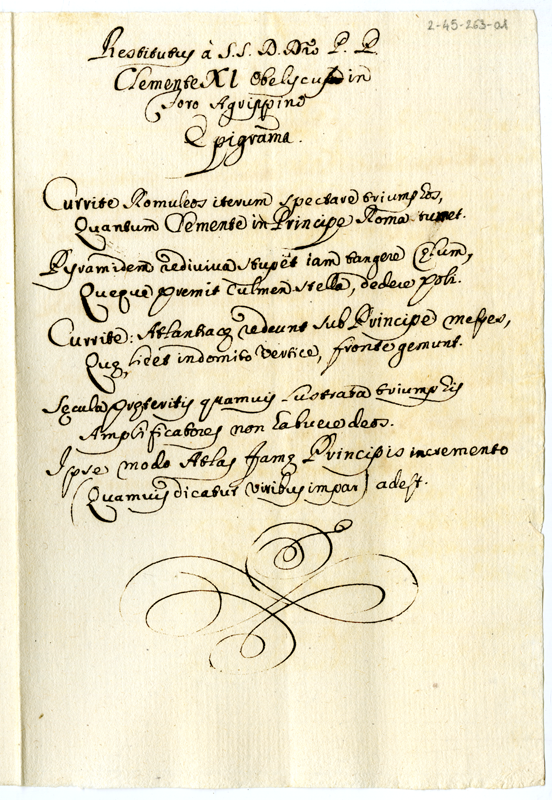 2-45-263-01
Restitutus à S.S. D. Dño P. P.
Clemente XI Obeliscus in
Foro Agrippino
Epigrama.
Currite Romuleos iterum spectare triumphos,
Quantum Clemente in Principe Roma tumet.
Pyramidem rediviva stupēt iam tangere Cęlum,
Queque premit Culmen stella, dedere poli.
Currite: Atlantiacę redeunt sub Principe messes,
Quę, licet indomito vertice, fronte gemunt.
Sęcula pręteritis quamvis lustrata triumphis
Amplificatores non habuere deos.
Ipse modo Atlas famę Principis incremento
(Quamvis dicatur viribus impar) adest.